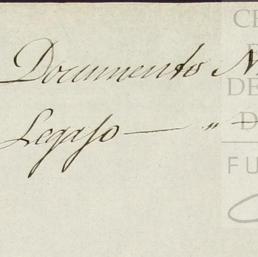 Documento N
Legajo — „ —
CE
DE
D
FU